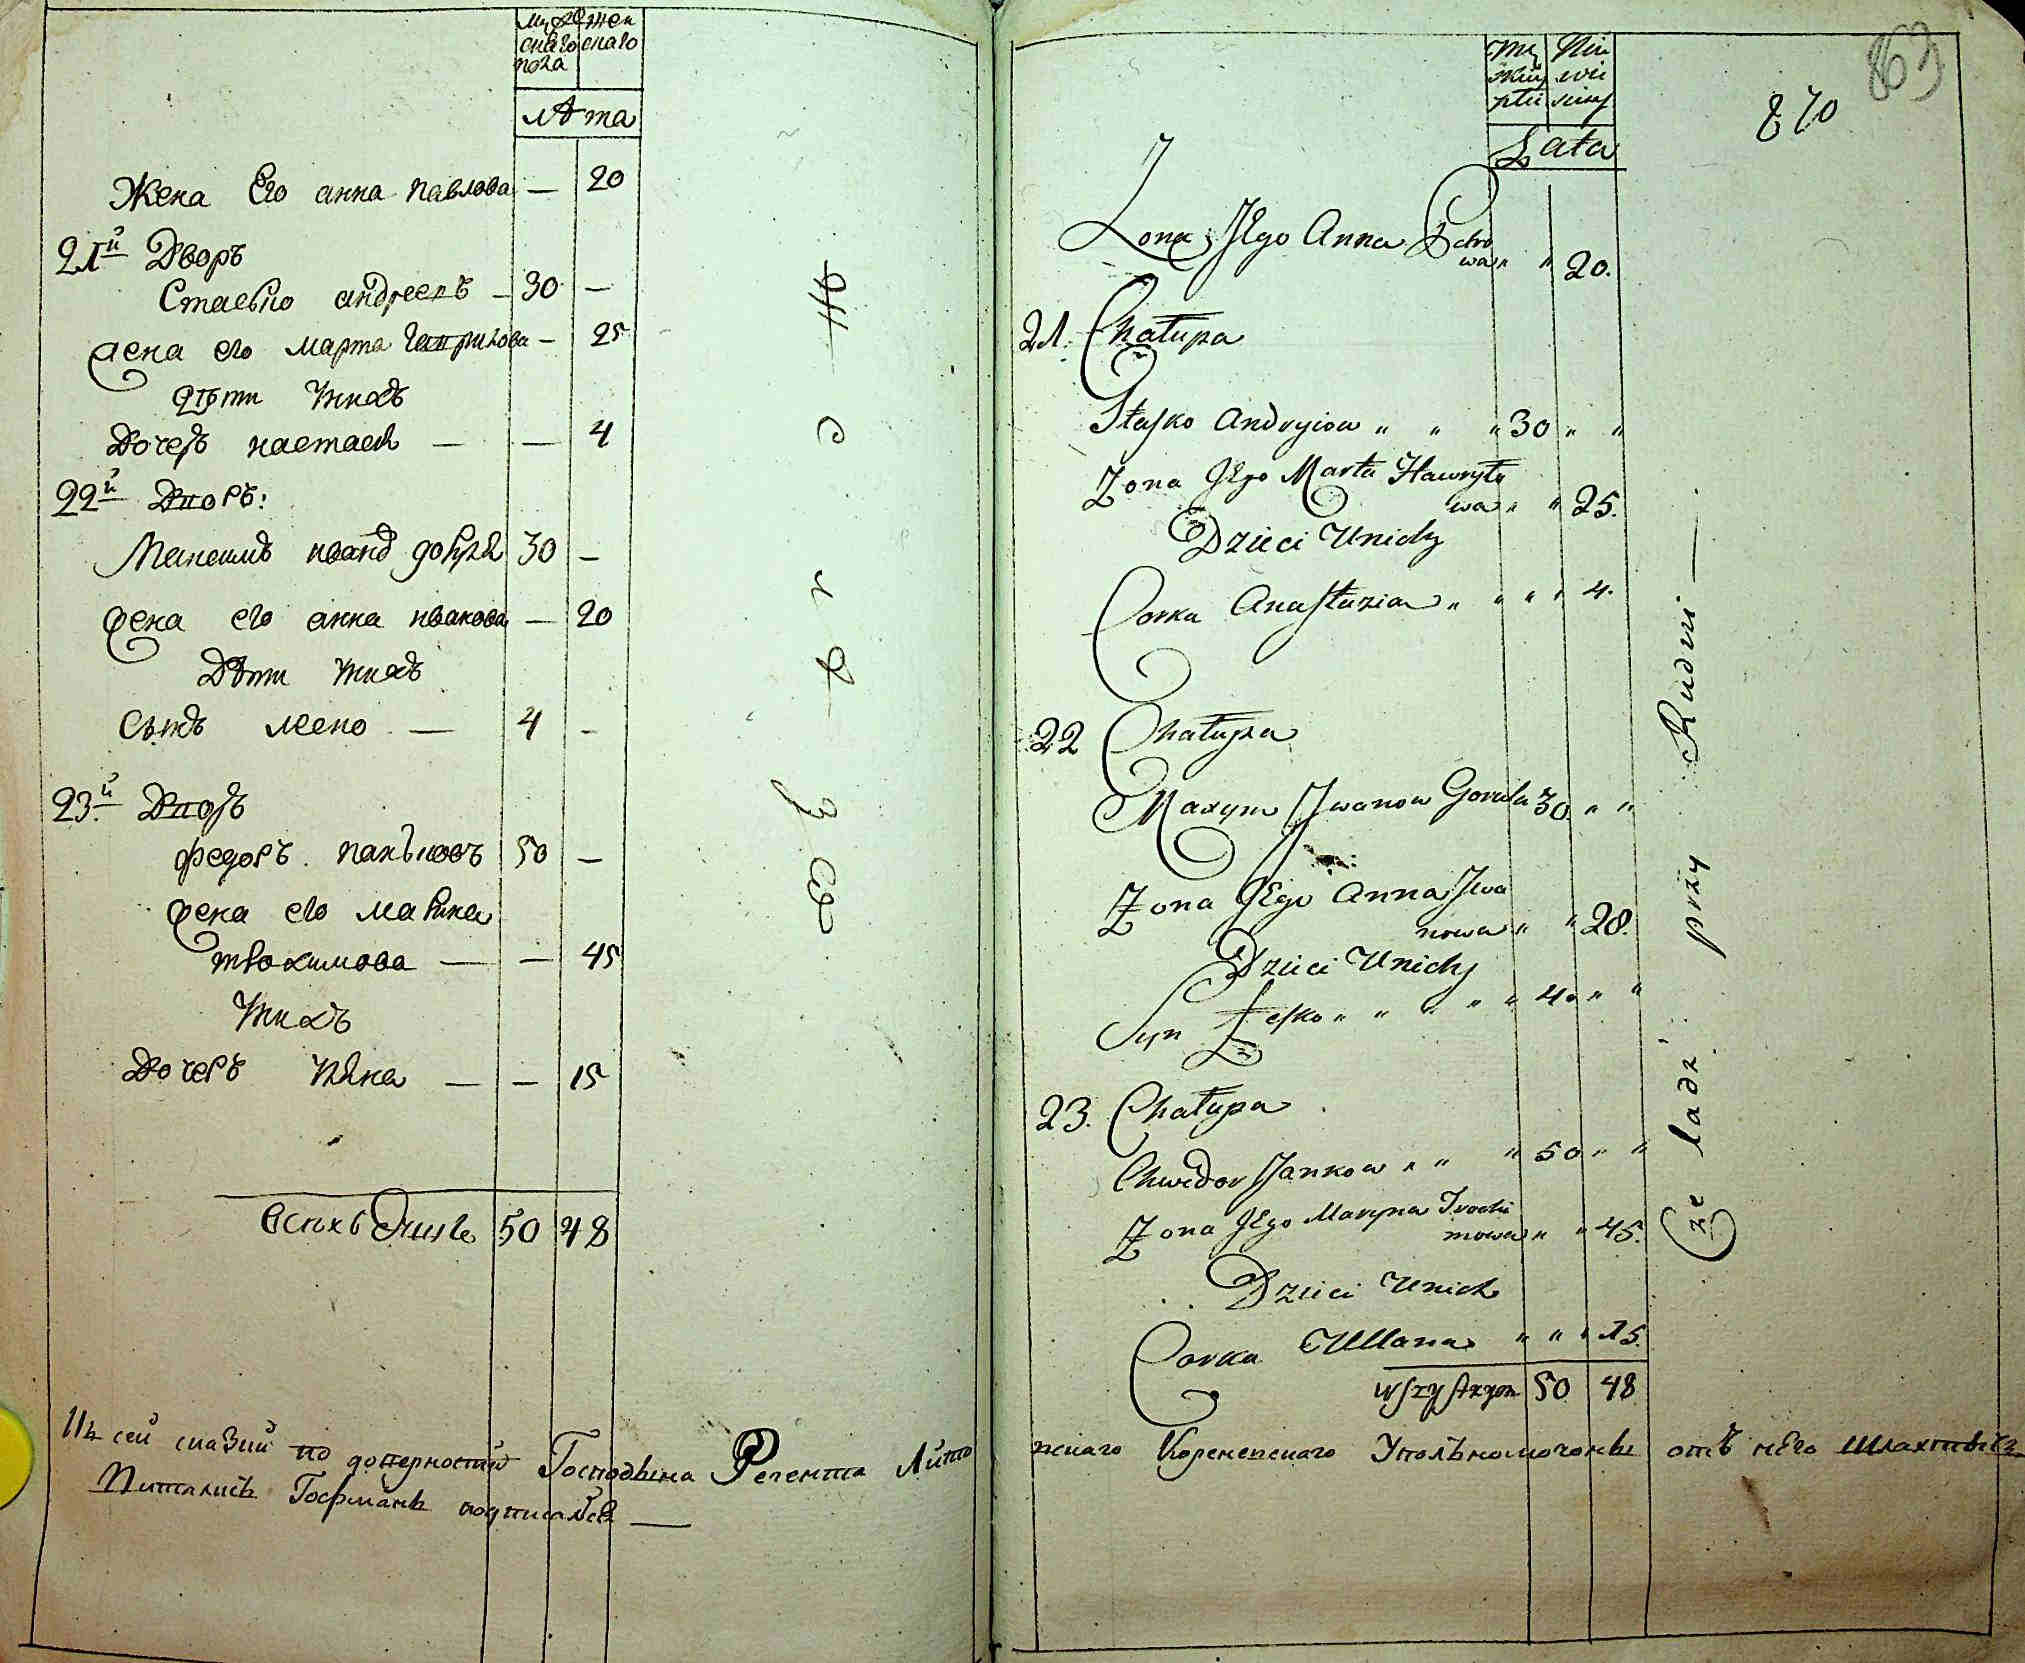 мужескаго пола
женскаго
лѣта
Жена Его анна павлова — 20
21й Дворъ
Стасько андреевъ — 30 —
жена его марта гаврилова — 25
дѣти Ихъ
Дочеръ настася — — 4
22й Дворъ:
Максимъ ивановъ 30 —
жена его анна иванова — 20
Дѣти Ихъ
Сынъ леско — 4 —
23й Дворъ
федоръ панковъ 50 —
жена его марина
трохимова — — 45
Ихъ
Дочеръ — — 15
Всехъ 50 48
863
870
Męzkiey płci
Lata
Zona JEgo Anna " " 20.
21. Chałupa
Stasko Andryiow " " " 30 " "
Zona JEgo Marta Hawryło
wa " " 25.
Dzieci Unich
Corka Anastazia " " " " 4.
22 Chałupa
Maxym Jwanow 30 " "
Zona JEgo Anna Jwa
nowa " " 28.
Dzieci Unich
Syn Łesko " " " " 4 " "
23. Chałupa
Chwedor Jankow " " " 50 " "
Zona JEgo Maryna Trochi
mowa " " 45.
Dzieci Unich
Corka Ullana " " " 15.
50 48
przy Rudni —
Къ сей сказки по доверности Господина Регента
Кореневскаго отъ него
Гофманъ подписался —